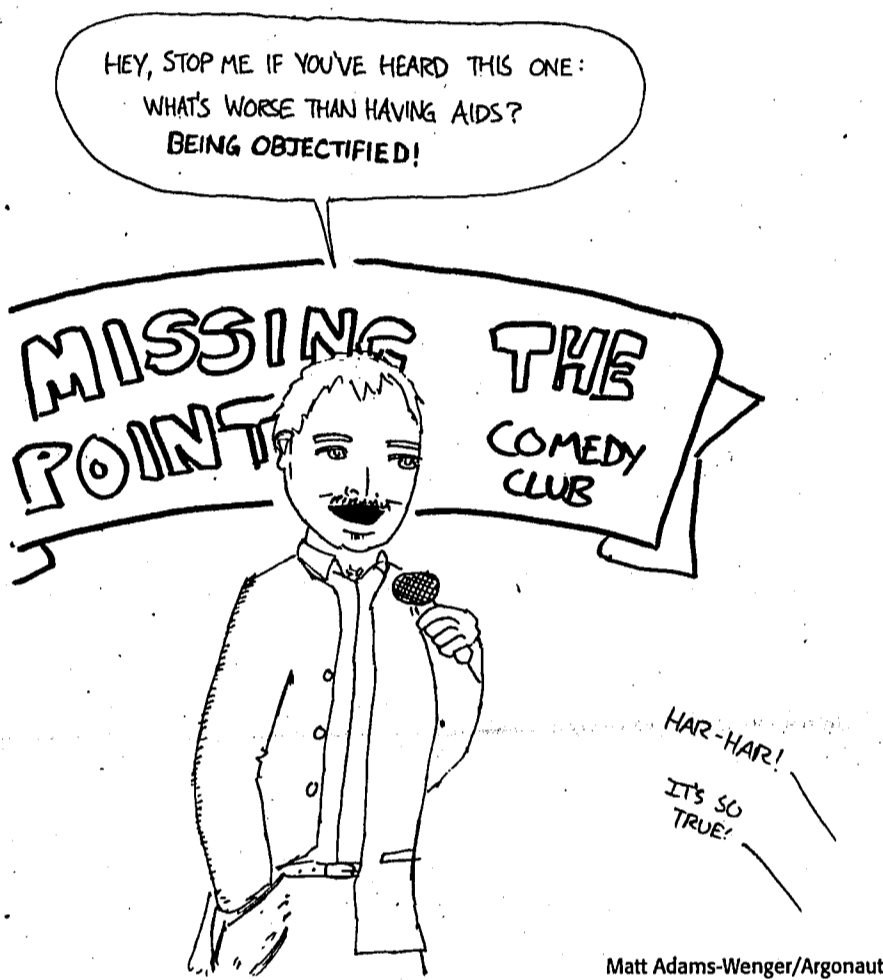 HEY, STOP ME IF YOU'VE HEARD THIS ONE:
WHAT'S WORSE THAN HAVING AIDS?
BEING OBJECTIFIED!
MISSING THE
POINT COMEDY
CLUB
HAR-HAR!
IT'S SO
TRUE!
Matt Adams-Wenger/Argonaut